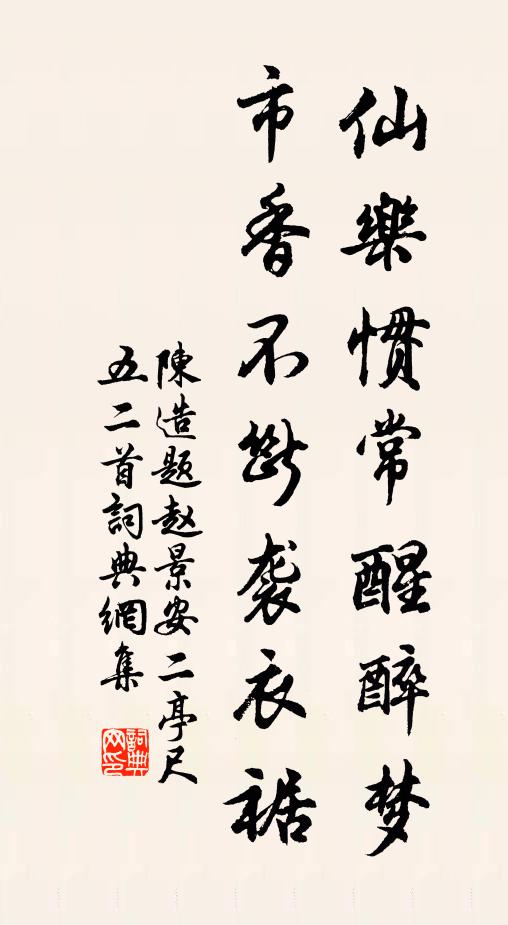 仙樂惯常醒醉梦
市香不断袭衣裾
陳造题赵景安二亭尺
五二首詞典網集
詞典网印